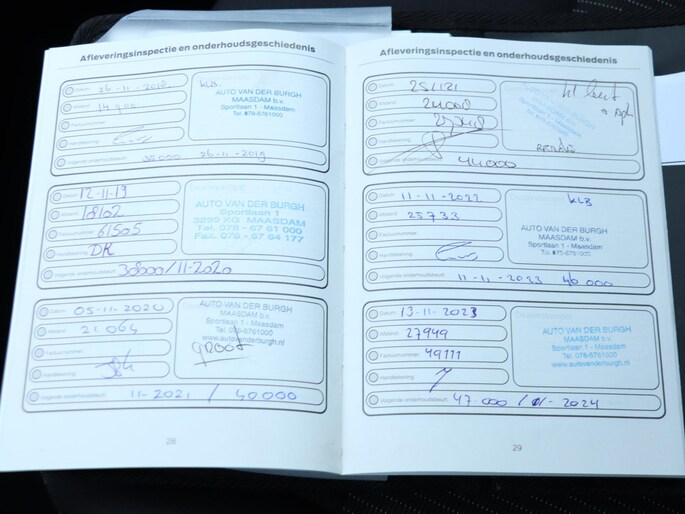 Afleveringsinspectie en onderhoudsgeschiedenis
Datum 26-11-2018
Afstand
Factuurnummer
Handtekening
Volgende onderhoudsbeurt 26-11-2019
KLB
AUTO VAN DER BURGH
MAASDAM b.v.
Sportlaan 1 - Maasdam
Tel. 078-6761000
Datum 12-11-19
Afstand 18102
Factuurnummer 61505
Handtekening DK
Volgende onderhoudsbeurt 30000/11-2020
AUTO VAN DER BURGH
Sportlaan 1
3299 XG MAASDAM
Tel. 078 - 67 61 000
Fax. 078 - 67 64 177
Datum 05-11-2020
Afstand 21064
Factuurnummer
Handtekening
Volgende onderhoudsbeurt 11-2021 / 40000
AUTO VAN DER BURGH
MAASDAM b.v.
Sportlaan 1 - Maasdam
Tel. 078-6761000
www.autovanderburgh.nl
GROOT
28
Afleveringsinspectie en onderhoudsgeschiedenis
Datum
Afstand
Factuurnummer
Handtekening
Volgende onderhoudsbeurt 44000
Datum 11-11-2022
Afstand 25733
Factuurnummer
Handtekening
Volgende onderhoudsbeurt 11-11-2033 46000
KLB
AUTO VAN DER BURGH
MAASDAM b.v.
Sportlaan 1 - Maasdam
Tel. 078-6761000
Datum 13-11-2023
Afstand 27949
Factuurnummer 49111
Handtekening
Volgende onderhoudsbeurt 47000 / 11-2024
AUTO VAN DER BURGH
MAASDAM b.v.
Sportlaan 1 - Maasdam
Tel. 078-6761000
www.autovanderburgh.nl
29